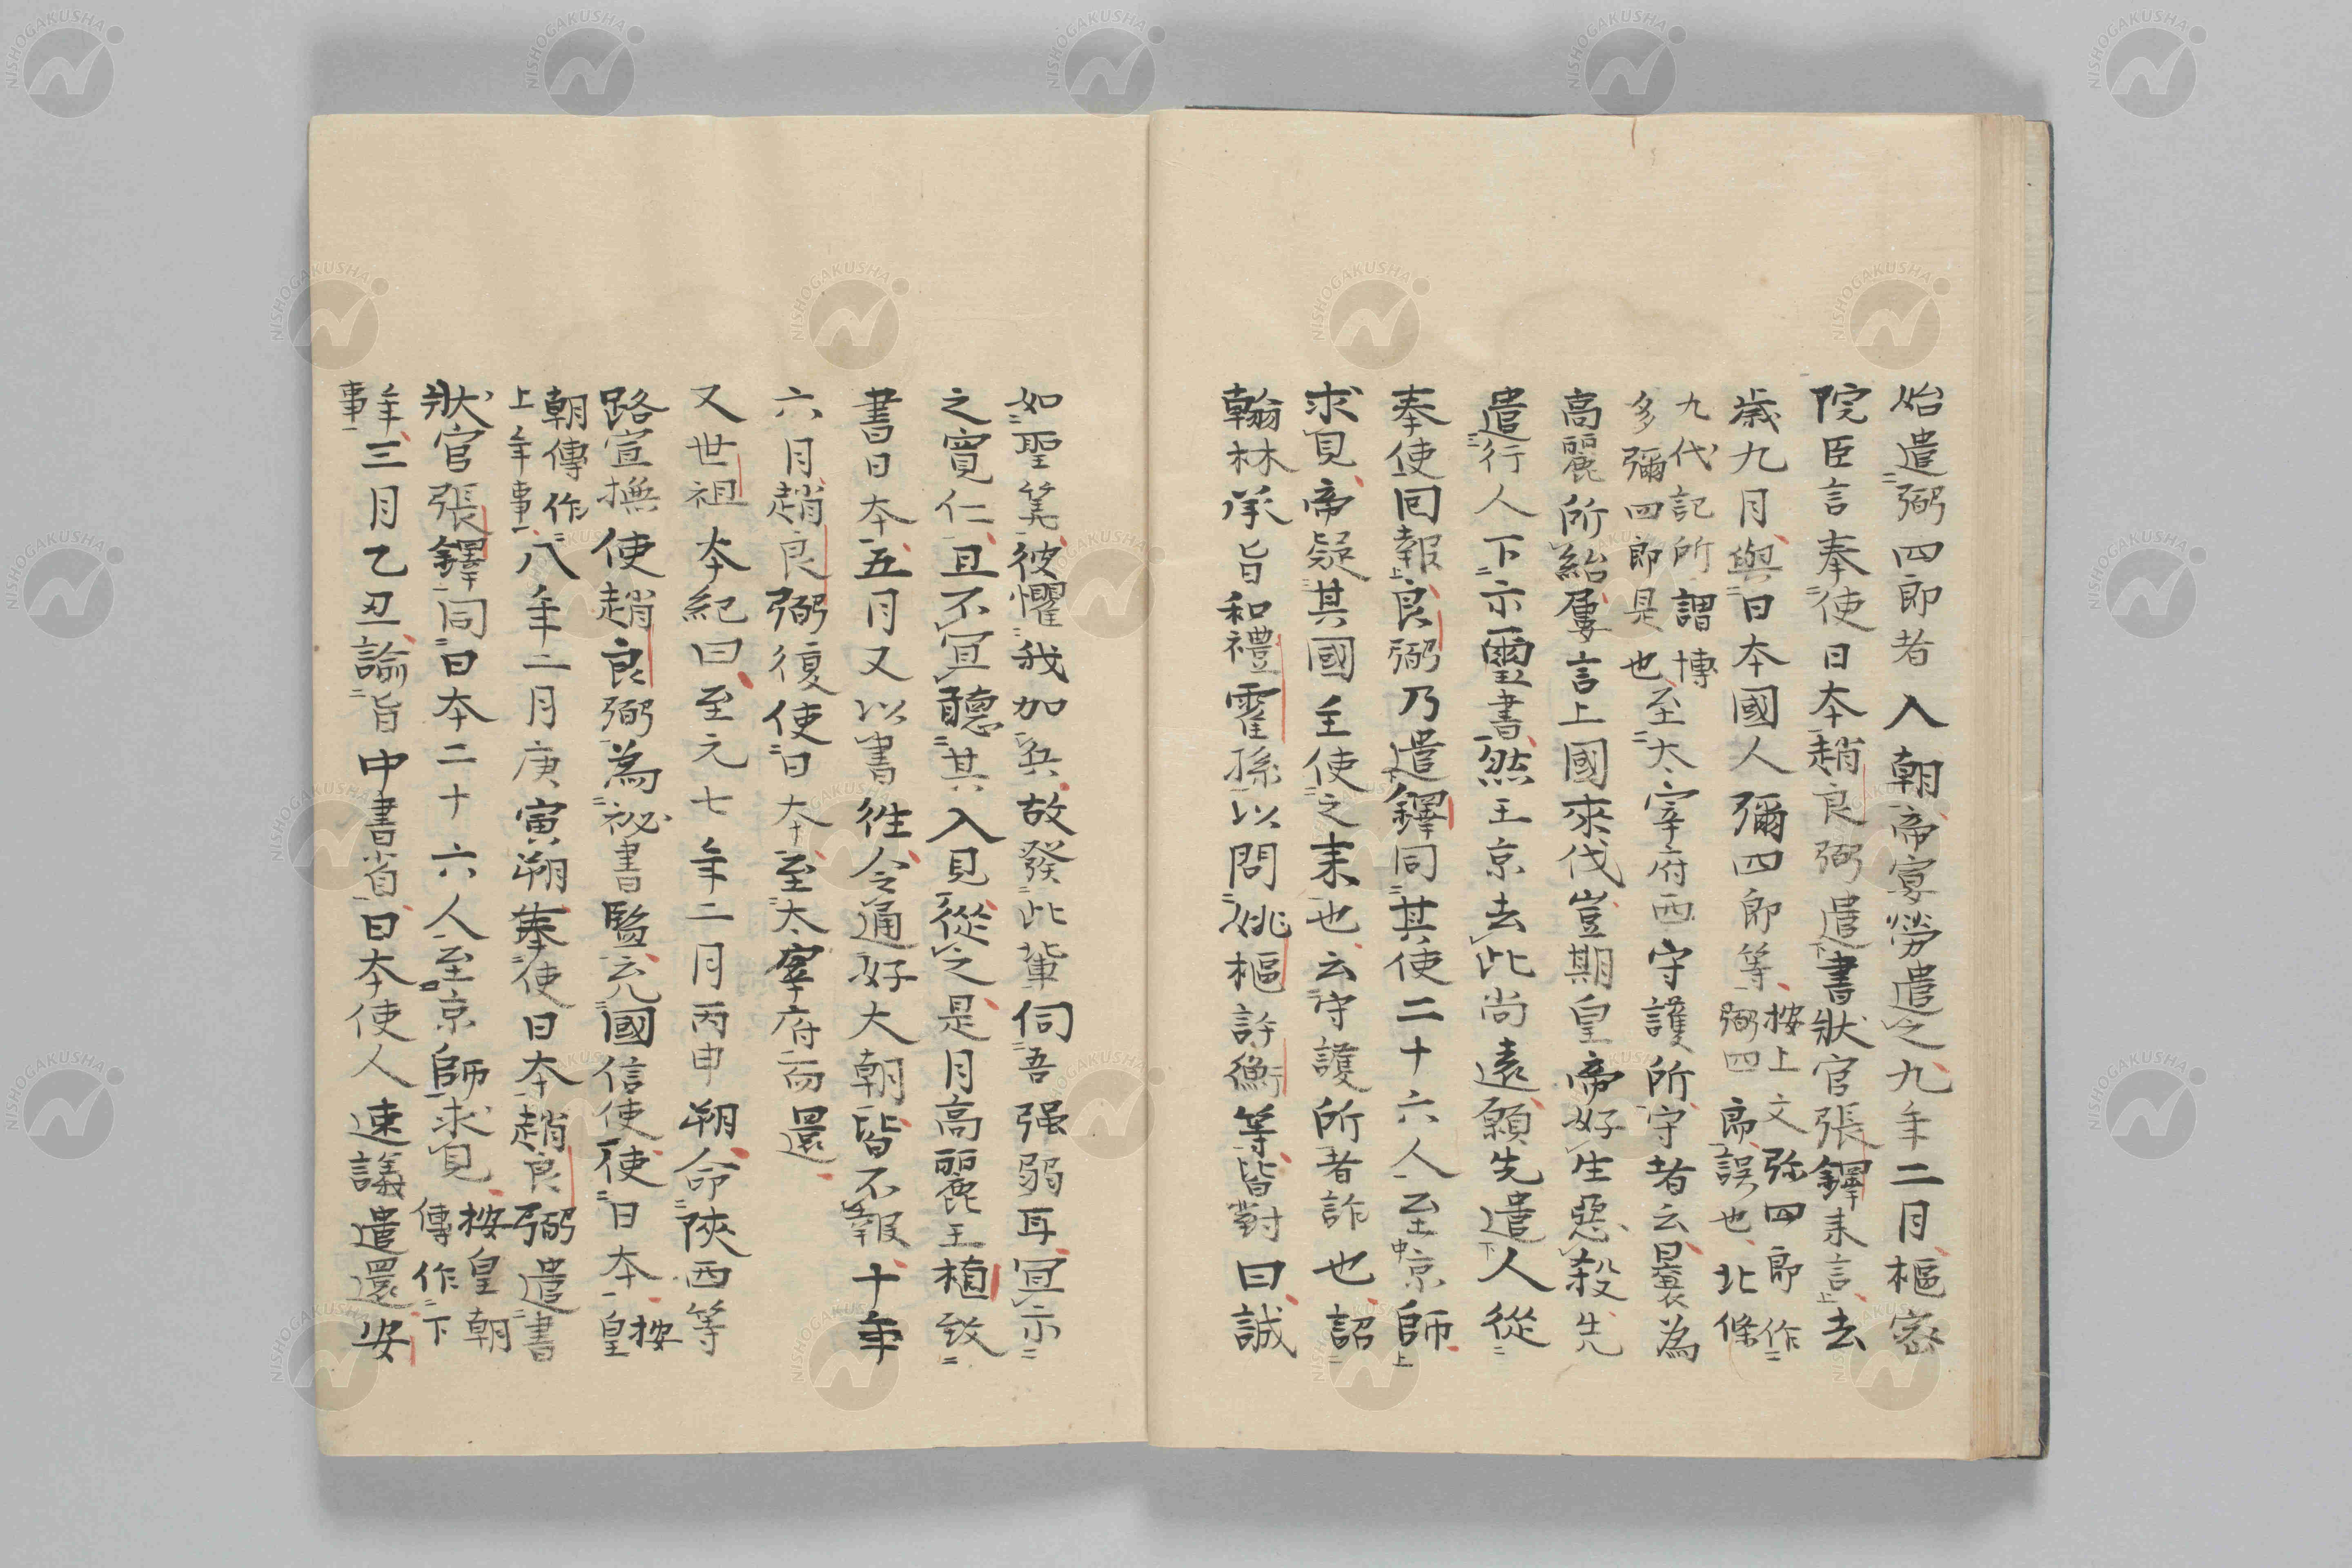 始遣彌四郎者入朝帝宴勞遣之九年二月樞密
院臣言奉使日本趙良弼遣書狀官張鐸来言去
歳九月與日本國人彌四郎等按上文弥四郎作
弼四郎誤也北條
九代記所謂博
多彌四郎是也至太宰府西守護所守者云曩為
高麗所紿屢言上國來伐豈期皇帝好生惡殺先
遣行人下示璽書然王京去此尚遠願先遣人從
奉使回報良弼乃遣鐸同其使二十六人至京師
求見帝疑其國主使之来也云守護所者詐也詔
翰林承旨和禮霍孫以問姚樞許衡等皆對曰誠
如聖筭彼懼我加兵故發此輩伺吾强弱耳宜示
之寛仁且不宜聽其入見從之是月高麗王植致
書日本五月又以書徃令通好大朝皆不報十年
六月趙良弼復使日本至太宰府而還
又世祖本紀曰至元七年二月丙申朔命陝西等
路宣撫使趙良弼為祕書監充國信使使日本按
皇
朝傳作
上年事八年二月庚寅朔奉使日本趙良弼遣書
狀官張鐸同日本二十六人至京師求見按皇朝
傳作下
年
事三月乙丑諭旨中書省日本使人速議遣還安
NISHOGAKUSHA